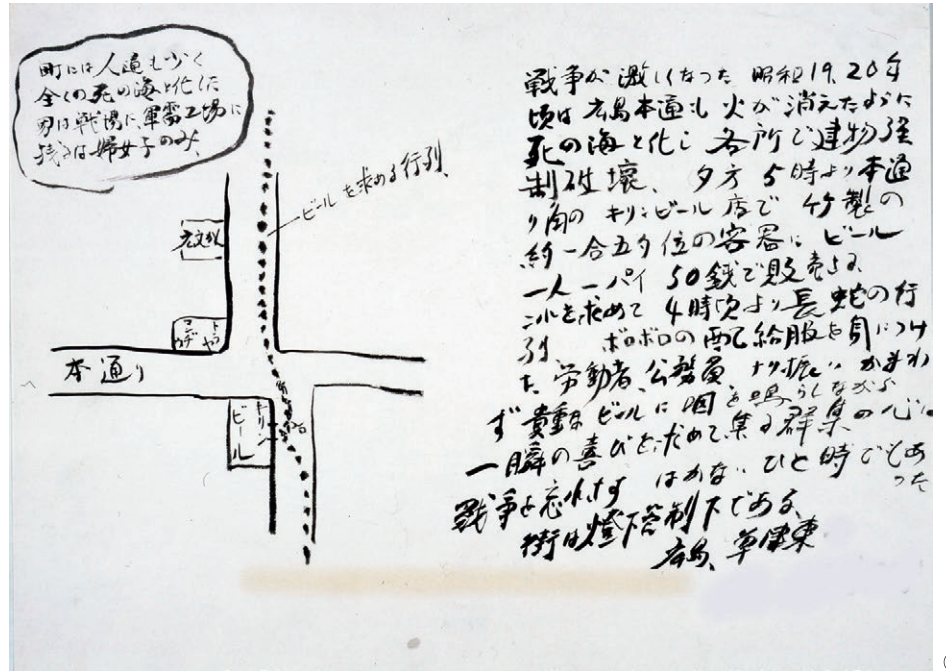 町には人通も少く
全くの死の海と化した
男は戦場に、軍需工場に
残るは婦女子のみ、
ビールを求める行列
本通り
キリン
ビール
戦争が激しくなった 昭和19、20年
頃は 広島本通も 火が消えたように
死の海と化し 各所で建物強
制破壊、 夕方 5時より本通
り角の キリンビール店で 竹製の
約一合五勺位の容器に ビール
一人一パイ 50銭で販売する、
これを求めて 4時頃より長蛇の行
列、 ボロボロの配給服を身につけ
た、労働者、公務員、 かまわ
ず貴重なビールに咽を鳴らしながら
一瞬の喜びを求めて集る群集の心に
はかないひと時でもあった
戦争を忘れさす
街は燈下管制下である、
広島、草津東